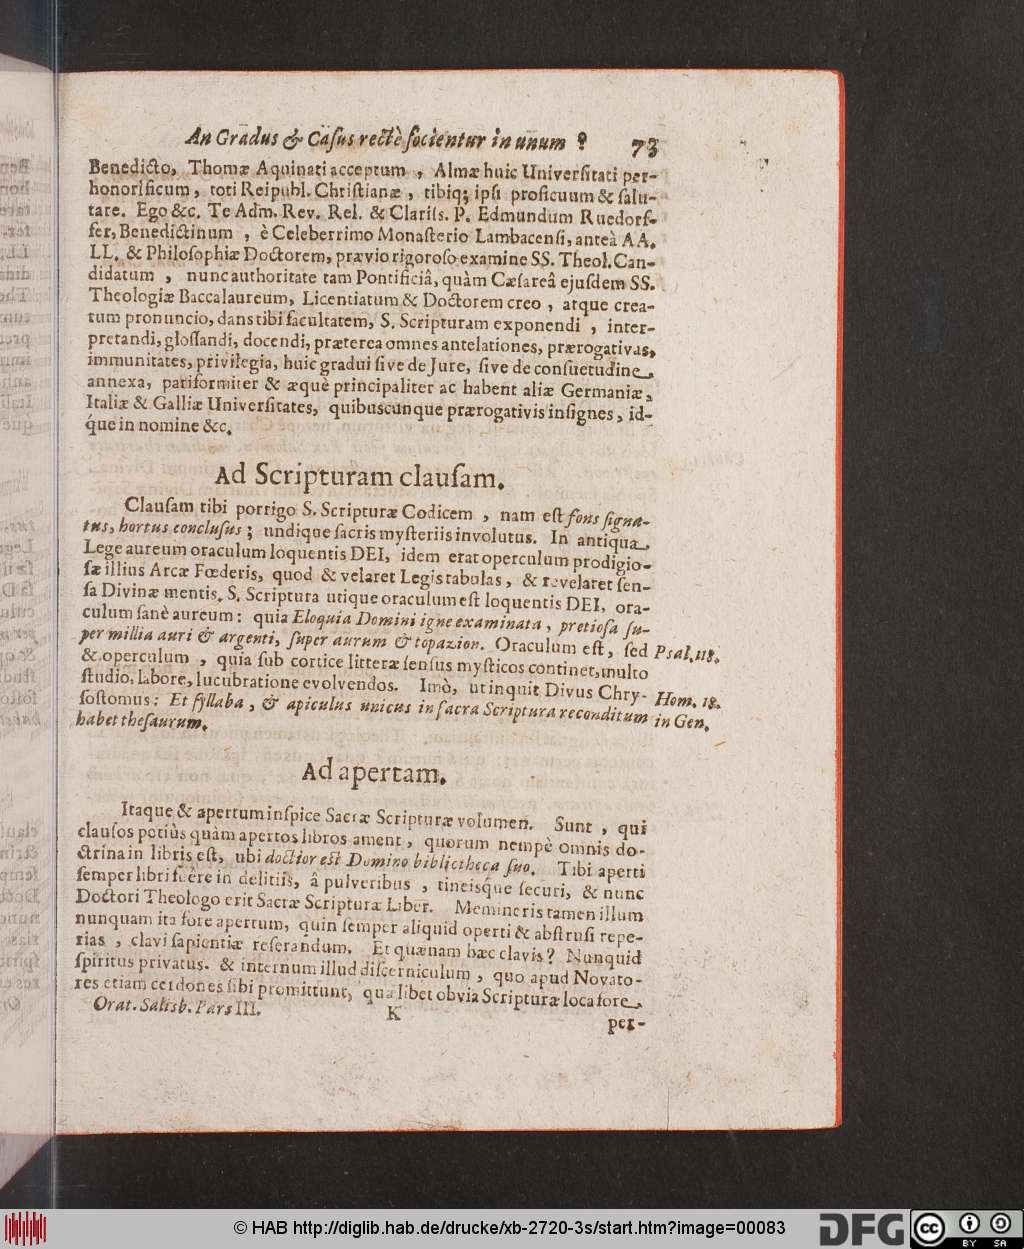 An Gradus & Casus rectè socientur in unum ? 73
Benedicto, Thomæ Aquinati acceptum, Almæ huic Universitati per-
honorificum, toti Reipubl. Christianæ, tibiq; ipsi proficuum & salu-
tare. Ego &c. Te Adm. Rev. Rel. & Clariss. P. Edmundum Ruedorf-
fer, Benedictinum, è Celeberrimo Monasterio Lambacensi, anteà AA.
LL. & Philosophiæ Doctorem, prævio rigoroso examine SS. Theol. Can-
didatum, nunc authoritate tam Pontificiâ, quàm Cæsareâ ejusdem SS.
Theologiæ Baccalaureum, Licentiatum & Doctorem creo, atque crea-
tum pronuncio, dans tibi facultatem, S. Scripturam exponendi, inter-
pretandi, glossandi, docendi, præterea omnes antelationes, prærogativas,
immunitates, privilegia, huic gradui sive de Jure, sive de consuetudine,
annexa, pariformiter & æquè principaliter ac habent aliæ Germaniæ,
Italiæ & Galliæ Universitates, quibuscunque prærogativis insignes, id-
q́ue in nomine &c.
Ad Scripturam clausam.
Clausam tibi porrigo S. Scripturæ Codicem, nam est fons signa-
tus, hortus conclusus; undique sacris mysteriis involutus. In antiqua,
Lege aureum oraculum loquentis DEI, idem erat operculum prodigio-
sæ illius Arcæ Fœderis, quod & velaret Legis tabulas, & revelaret sen-
sa Divinæ mentis. S. Scriptura utique oraculum est loquentis DEI, ora-
culum sanè aureum: quia Eloquia Domini igne examinata, pretiosa su-
per millia auri & argenti, super aurum & topazion. Oraculum est, sed Psal. 118.
& operculum, quia sub cortice litteræ sensus mysticos continet, multo
studio, labore, lucubratione evolvendos. Imò, ut inquit Divus Chry- Hom. 18.
sostomus: Et syllaba, & apiculus unicus in sacra Scriptura reconditum in Gen.
habet thesaurum.
Ad apertam.
Itaque & apertum inspice Sacræ Scripturæ volumen. Sunt, qui
clausos potiùs quàm apertos libros ament, quorum nempè omnis do-
ctrina in libris est, ubi doctior est Domino bibliotheca suo. Tibi aperti
semper libri fuêre in delitiis, â pulveribus, tineisq́ue securi, & nunc
Doctori Theologo erit Sacræ Scripturæ Liber. Memineris tamen illum
nunquam ita fore apertum, quin semper aliquid operti & abstrusi repe-
rias, clavi sapientiæ referandum. Et quænam hæc clavis? Nunquid
spiritus privatus. & internum illud discerniculum, quo apud Novato-
res etiam cerdones sibi promittunt, qualibet obvia Scripturæ loca fore,
Orat. Salisb. Pars III. K per-
© HAB http://diglib.hab.de/drucke/xb-2720-3s/start.htm?image=00083
DFG cc BY SA